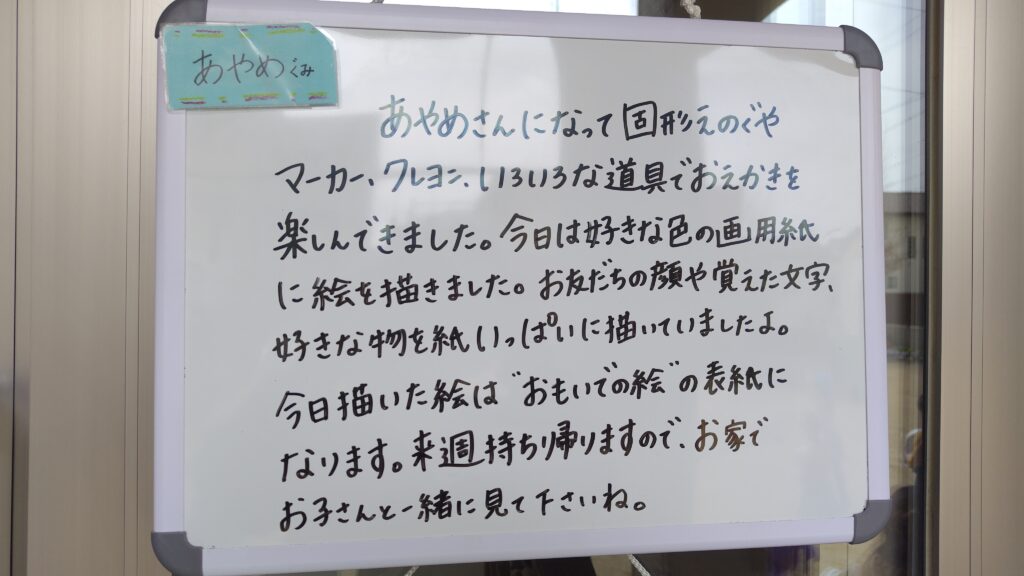 あやめぐみ
あやめさんになって固形えのぐや
マーカー、クレヨン、いろいろな道具でおえかきを
楽しんできました。今日は好きな色の画用紙
に絵を描きました。お友だちの顔や覚えた文字、
好きな物を紙いっぱいに描いていましたよ。
今日描いた絵は"おもいでの絵"の表紙に
なります。来週持ち帰りますので、お家で
お子さんと一緒に見て下さいね。